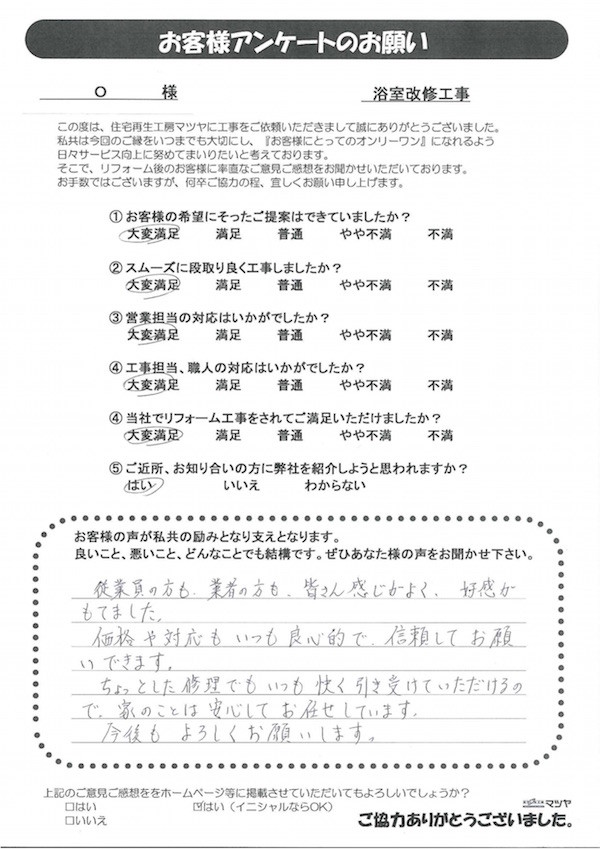 お客様アンケートのお願い
O 様 浴室改修工事
この度は、住宅再生工房マツヤに工事をご依頼いただきまして誠にありがとうございました。
私共は今回のご縁をいつまでも大切にし、『お客様にとってのオンリーワン』になれるよう
日々サービス向上に努めてまいりたいと考えております。
そこで、リフォーム後のお客様に率直なご意見ご感想をお聞かせいただいております。
お手数ではございますが、何卒ご協力の程、宜しくお願い申し上げます。
① お客様の希望にそったご提案はできていましたか？
大変満足 満足 普通 やや不満 不満
② スムーズに段取り良く工事しましたか？
大変満足 満足 普通 やや不満 不満
③ 営業担当の対応はいかがでしたか？
大変満足 満足 普通 やや不満 不満
④ 工事担当、職人の対応はいかがでしたか？
大変満足 満足 普通 やや不満 不満
④ 当社でリフォーム工事をされてご満足いただけましたか？
大変満足 満足 普通 やや不満 不満
⑤ ご近所、お知り合いの方に弊社を紹介しようと思われますか？
はい いいえ わからない
お客様の声が私共の励みとなり支えとなります。
良いこと、悪いこと、どんなことでも結構です。ぜひあなた様の声をお聞かせ下さい。
従業員の方も、業者の方も、皆さん感じがよく、好感が
もてました。
価格や対応もいつも良心的で、信頼してお願
いできます。
ちょっとした修理でもいつも快く引き受けていただけるの
で、家のことは安心してお任せしています。
今後もよろしくお願いします。
上記のご意見ご感想ををホームページ等に掲載させていただいてもよろしいでしょうか？
□はい ☑はい（イニシャルならOK）
□いいえ
マツヤ
ご協力ありがとうございました。